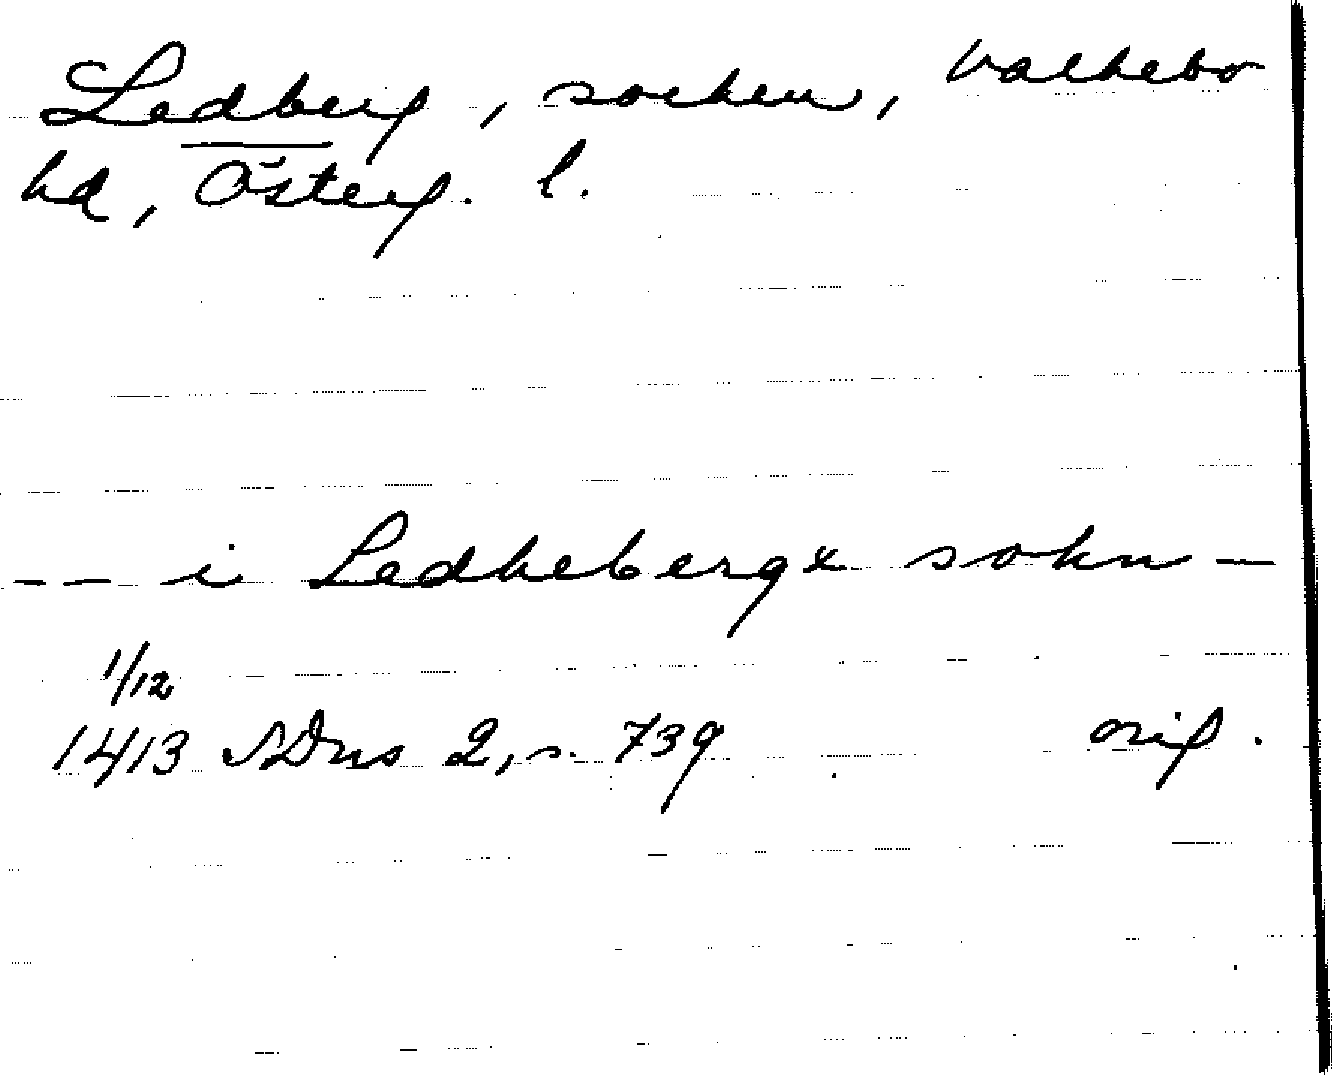 Ledberg, socken, Valkebo
hd, Österg. l.
-- i Ledhebergx sokn -
1/12
1413 SDns 2, s. 739 orig.